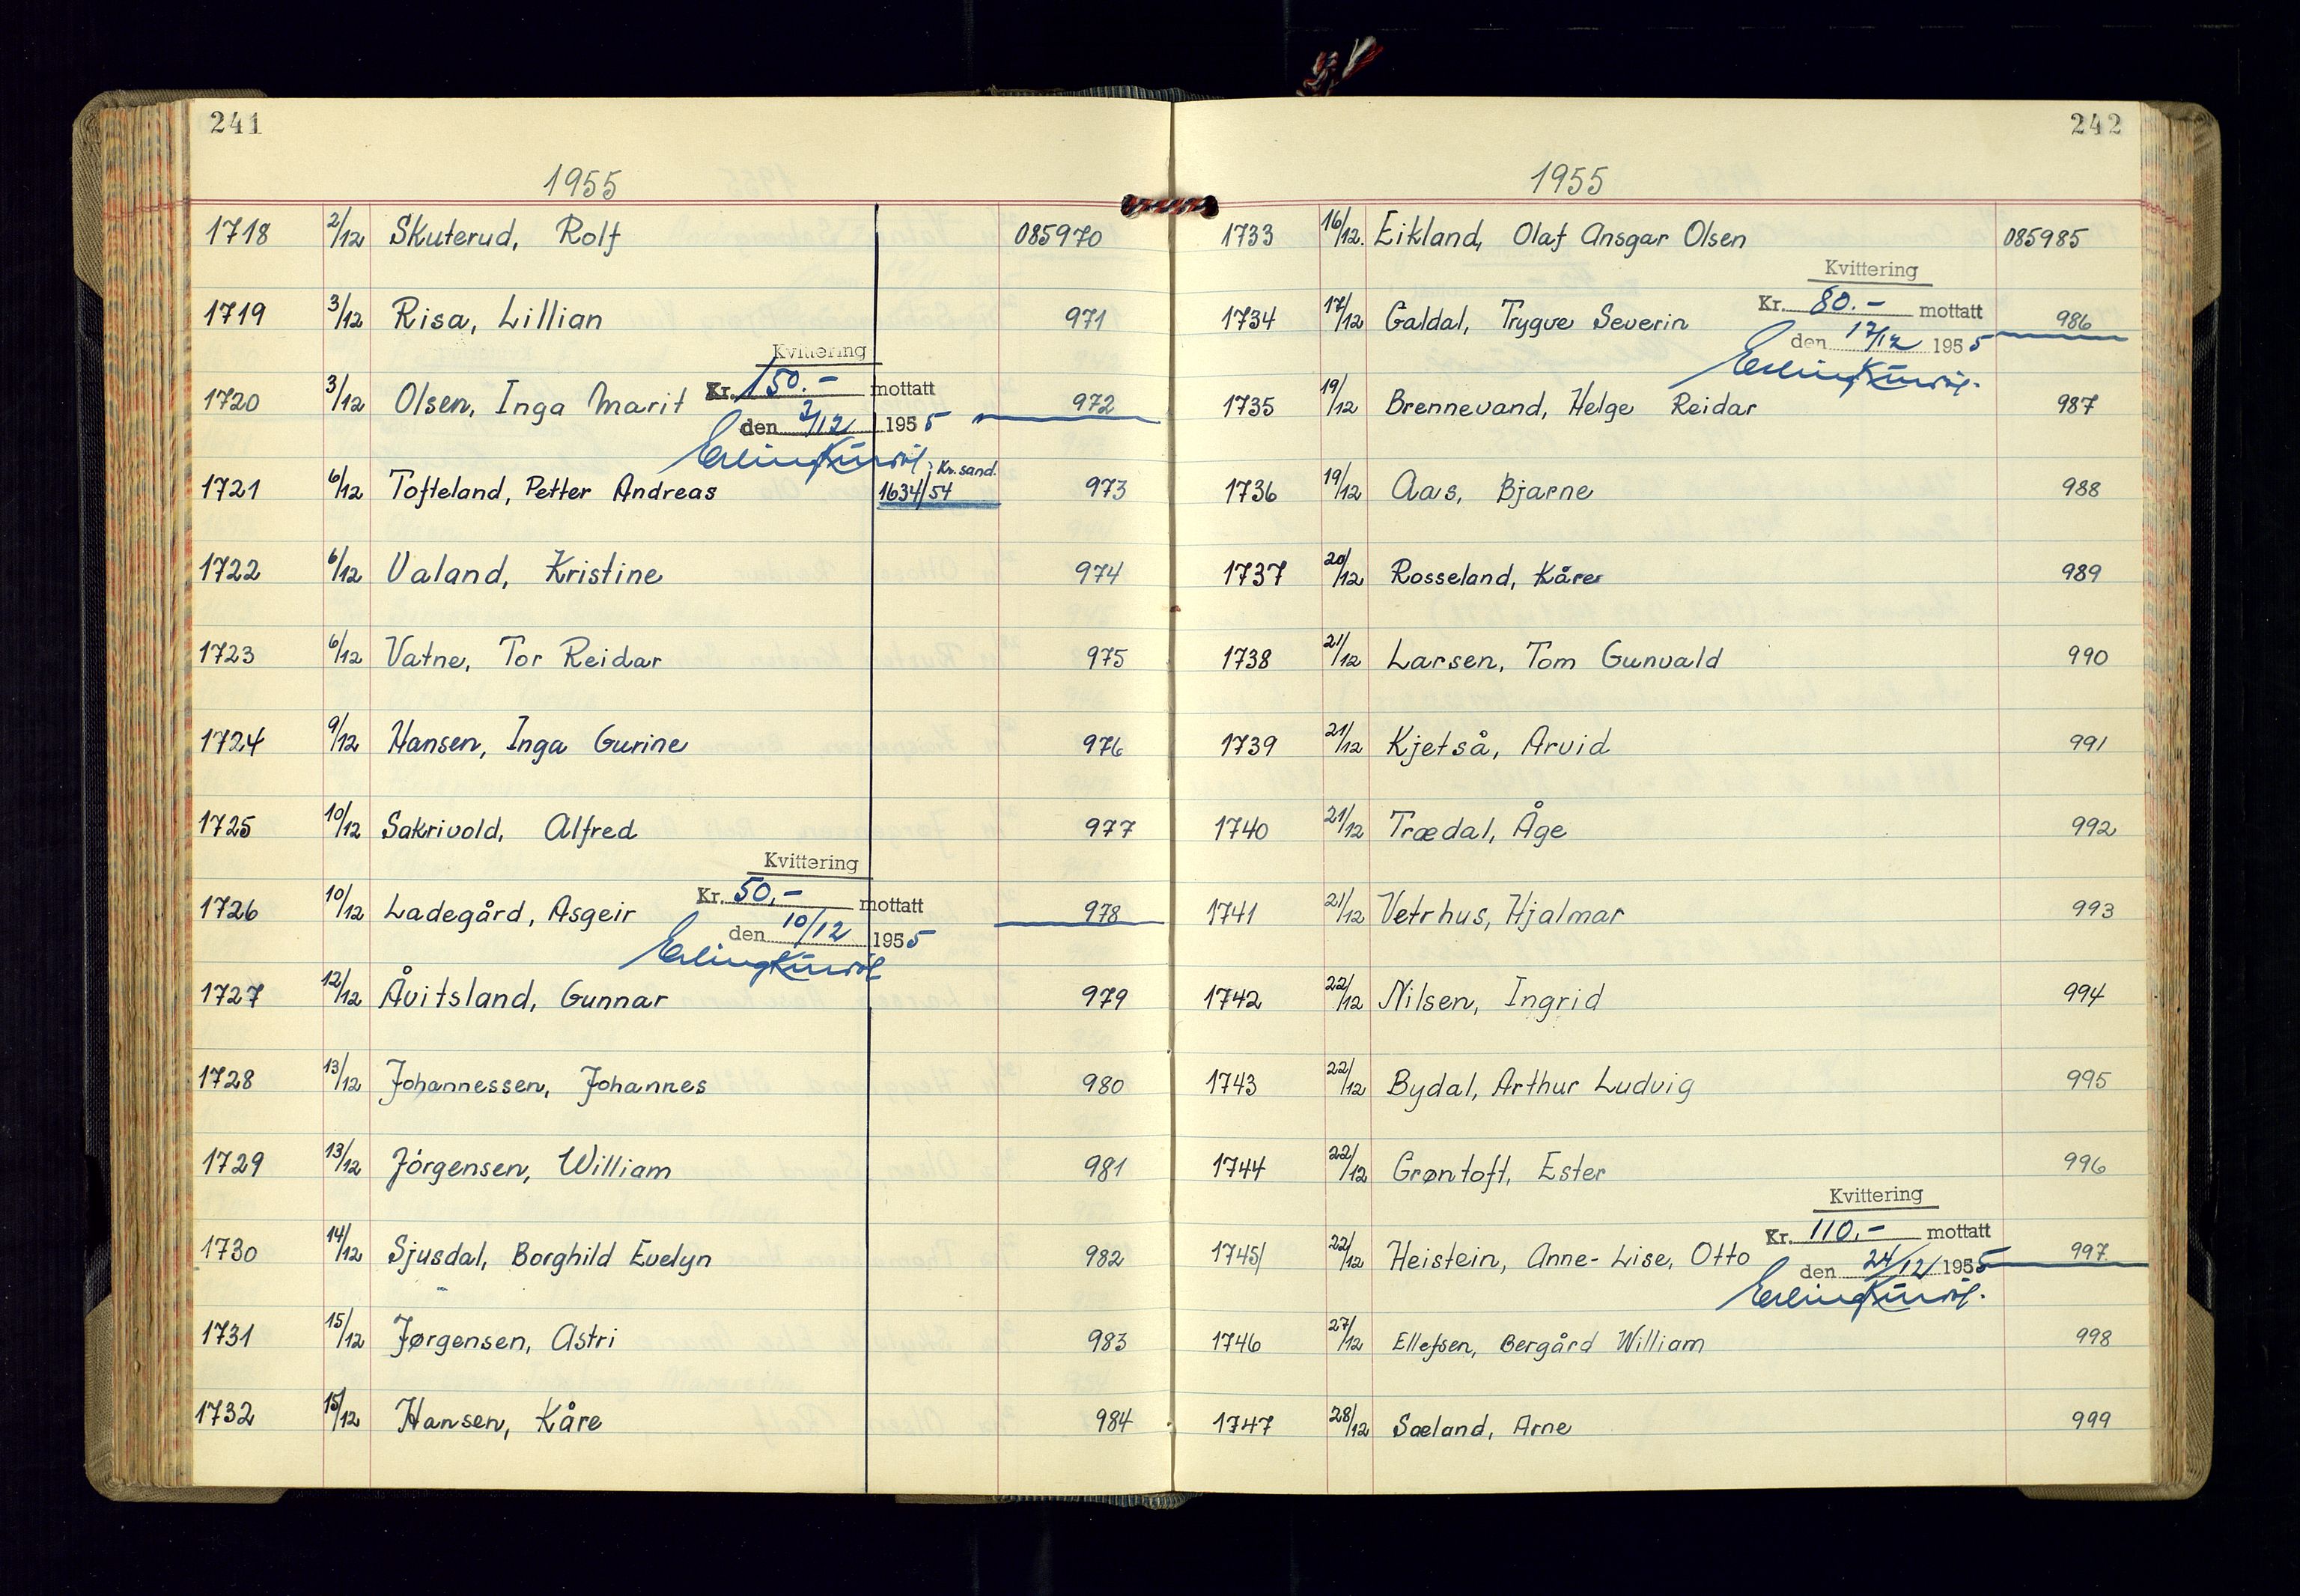 241
1955
1718 2/12 Skuterud, Rolf 085970
1719 3/12 Risa, Lillian 971
Kvittering
Kr. 150.- mottatt
1720 3/12 Olsen, Inga Marit 972
den 3/12 1955
Kr.sand.
1721 6/12 Tofteland, Petter Andreas 1634/54 973
1722 6/12 Valand, Kristine 974
1723 6/12 Vatne, Tor Reidar 975
1724 9/12 Hansen, Inga Gurine 976
1725 10/12 Sakrivold, Alfred 977
Kvittering
Kr. 50,- mottatt
1726 10/12 Ladegård, Asgeir 978
den 10/12 1955
1727 12/12 Åvitsland, Gunnar 979
1728 13/12 Johannessen, Johannes 980
1729 13/12 Jörgensen, William 981
1730 14/12 Sjusdal, Borghild Evelyn 982
1731 15/12 Jørgensen, Astri 983
1732 15/12 Hansen, Kåre 984
242
1955
1733 16/12. Eikland, Olaf Ansgar Olsen 085985
Kvittering
Kr. 80.- mottatt
1734 17/12 Galdal, Trygve Severin 986
den 17/12 1955
1735 19/12 Brennevand, Helge Reidar 987
1736 19/12 Aas, Bjarne 988
1737 20/12 Rosseland, Kåre 989
1738 21/12 Larsen, Tom Gunvald 990
1739 21/12 Kjetså, Arvid 991
1740 21/12 Trædal, Åge 992
1741 21/12 Vetrhus, Hjalmar 993
1742 22/12 Nilsen, Ingrid 994
1743 22/12 Bydal, Arthur Ludvig 995
1744 22/12 Grøntoft, Ester 996
Kvittering
Kr. 110,- mottatt
1745/ 22/12 Heistein, Anne-Lise, Otto 997
den 24/12 1955
1746 27/12 Ellefsen, Bergård William 998
1747 28/12 Sæland, Arne 999